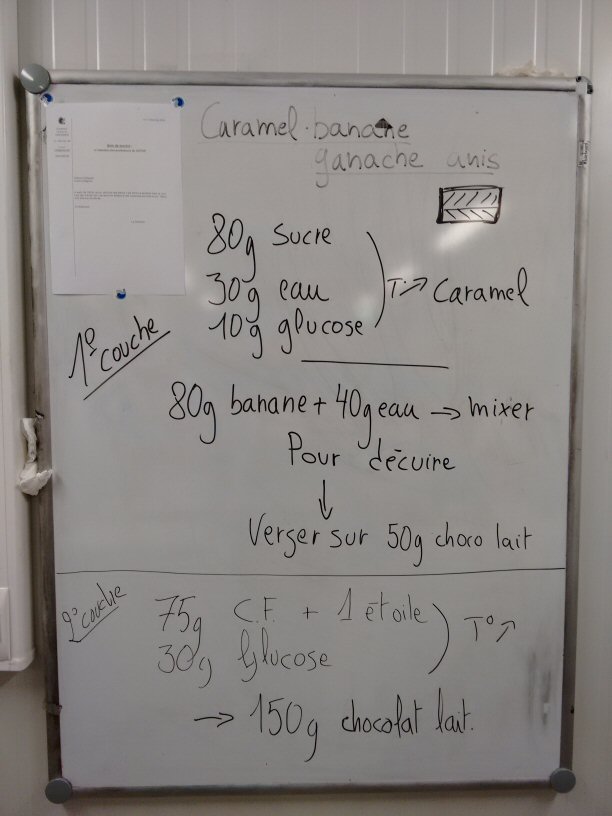 Caramel-banane
ganache anis
80g sucre
30g eau
10g glucose
T° ↗ Caramel
1° couche
80g banane + 40g eau → mixer
Pour décuire
↓
Verser sur 50g choco lait
2° couche
75g C.F. + 1 étoile
30g Glucose
T° ↗
→ 150g chocolat lait.